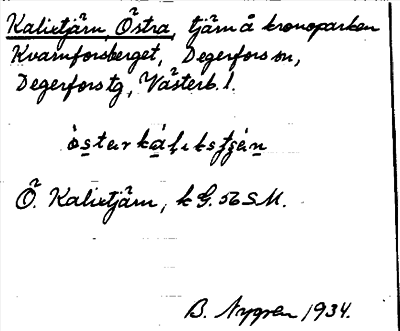 Kalixtjärn, Östra, tjärn å kronoparken
Kvarnforsberget, Degerfors sn,
Degerfors tg, Västerb. l.
Ö. Kalixtjärn, k G. 56 S.M.
B. Nygren 1934.